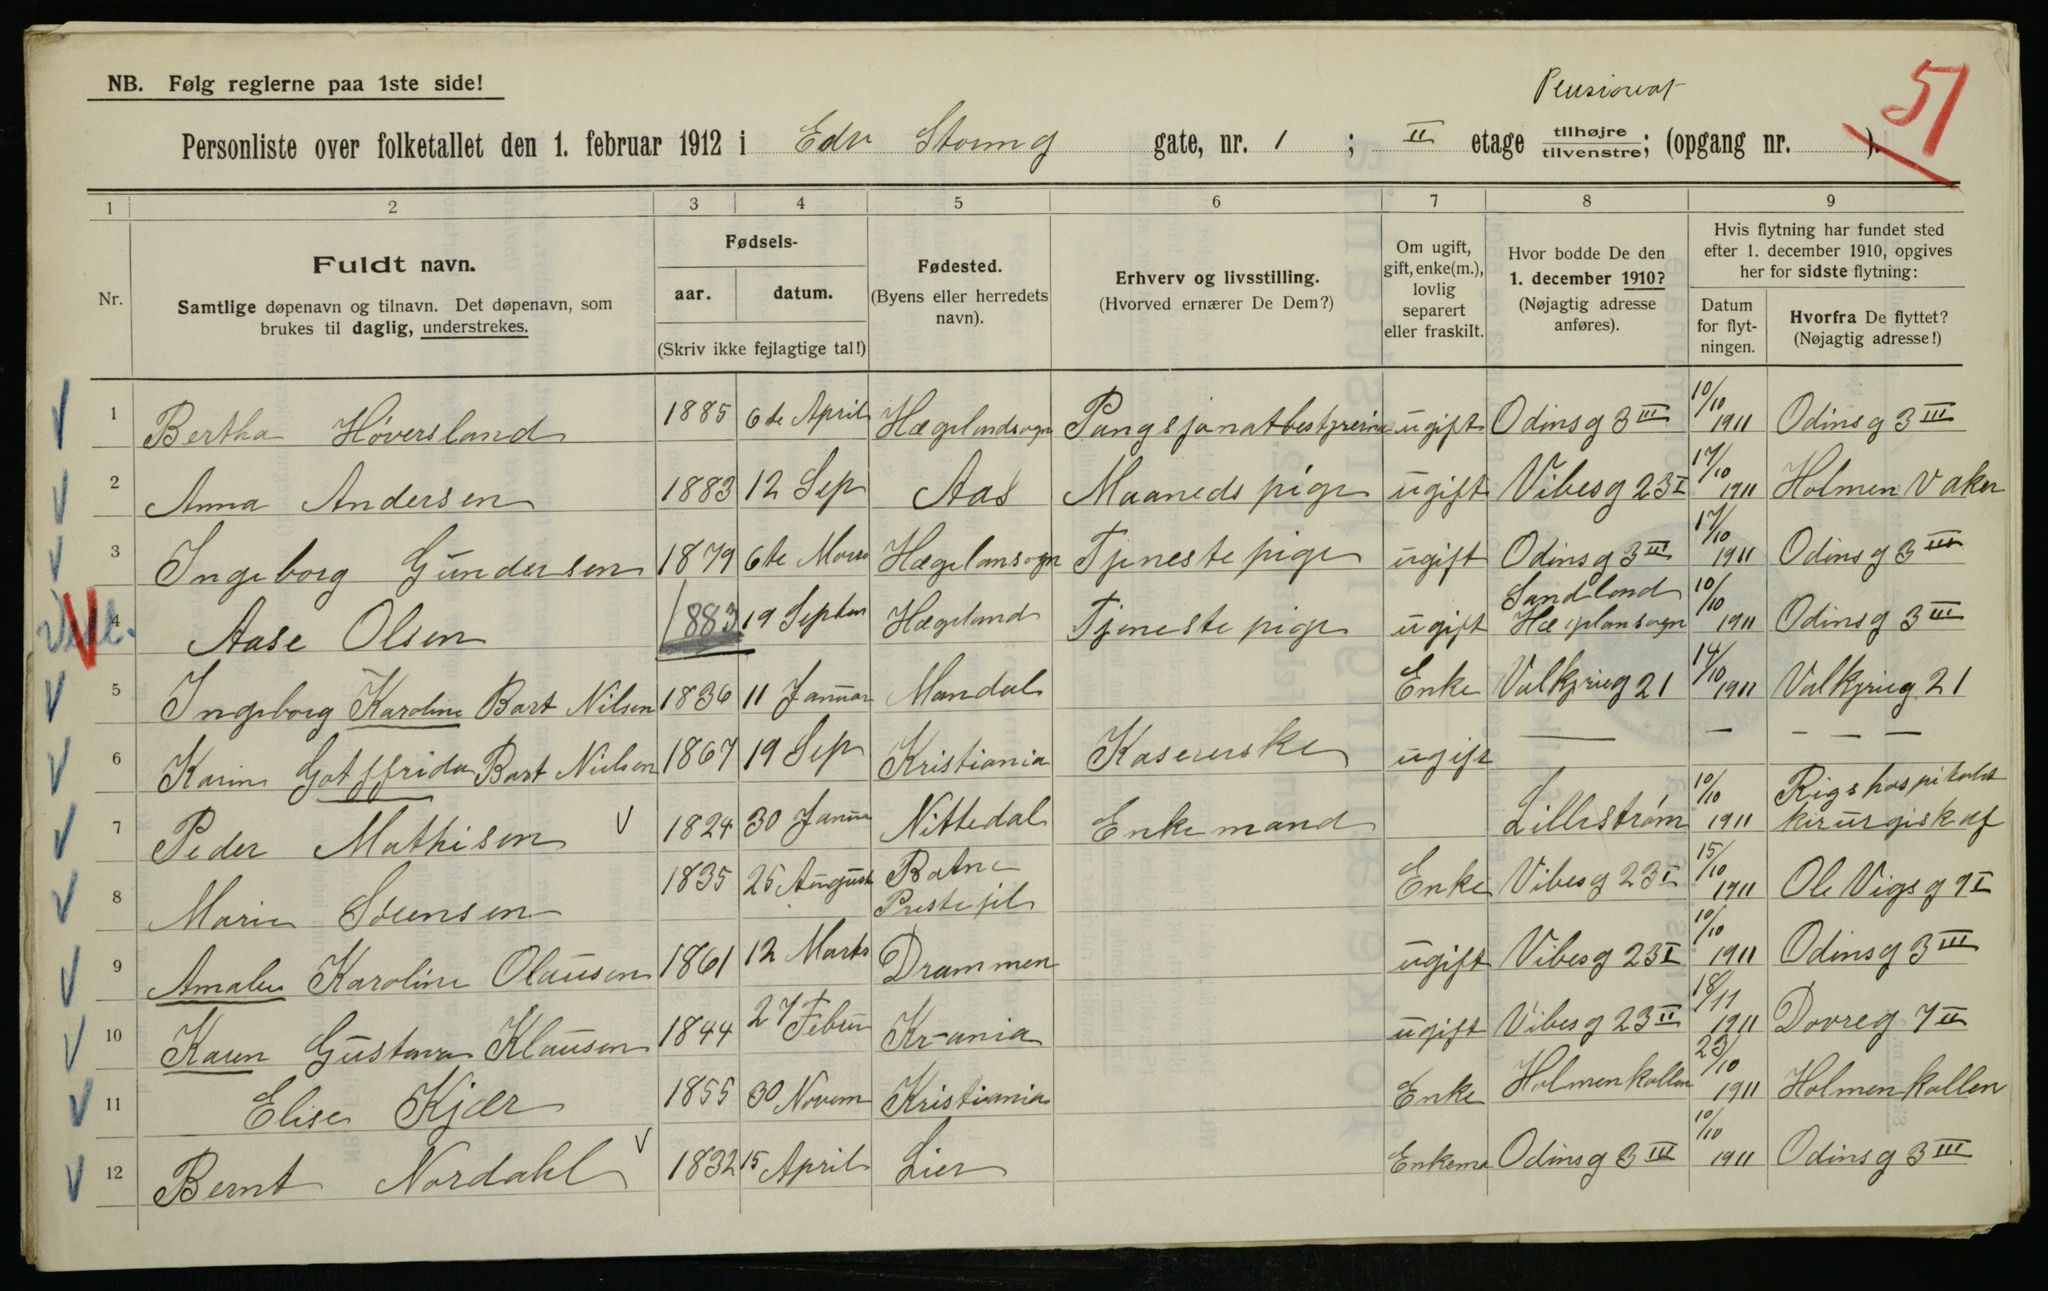 NB. Følg reglerne paa 1ste side!
Pensionat
51
Personliste over folketallet den 1. februar 1912 i Edv Storm g gate, nr. 1 ; II etage tilhøjre/tilvenstre; (opgang nr. ).
1 2 3 4 5 6 7 8 9
Nr.
Fuldt navn.
Samtlige døpenavn og tilnavn. Det døpenavn, som
brukes til daglig, understrekes.
Fødsels-
aar. datum.
(Skriv ikke fejlagtige tal!)
Fødested.
(Byens eller herredets
navn).
Erhverv og livsstilling.
(Hvorved ernærer De Dem?)
Om ugift,
gift, enke(m.),
lovlig
separert
eller fraskilt.
Hvor bodde De den
1. december 1910?
(Nøjagtig adresse
anføres).
Hvis flytning har fundet sted
efter 1. december 1910, opgives
her for sidste flytning:
Datum
for flyt-
ningen.
Hvorfra De flyttet?
(Nøjagtig adresse!)
1 Bertha Høversland 1885 6te April Hægelandsogn Pangsjonatbestyrerinne ugift Odinsg 3 III 10/10 1911 Odinsg 3 III
2 Anna Andersen 1883 12 Sep Aas Maaneds pige ugift Vibesg 23 I 17/10 1911 Holmen Vaker
3 Ingeborg Gundersen 1879 6te Mars Hægelansogn Tjeneste pige ugift Odinsg 3 III 17/10 1911 Odinsg 3 III
4 Aase Olsen 1883 19 Septem Hægeland Tjeneste pige ugift Sandland Hægelansogn 10/10 1911 Odinsg 3 III
5 Ingeborg Karoline Bart Nilsen 1836 11 Januar Mandal Enke Valkjrieg 21 14/10 1911 Valkjrieg 21
6 Karin Gotffrida Bart Nielsen 1867 19 Sep Kristiania Kasererske ugift — — — — —
7 Peder Mathisen 1824 30 Janua Nittedal Enkemand Lillestrøm 10/10 1911 Rigshospitalet kirurgisk af
8 Marie Sørensen 1835 25 August Ratne Prestejil Enke Vibesg 23 I 15/10 1911 Ole Vigsg 9 I
9 Amalie Karoline Olausen 1861 12 Marts Drammen ugift Vibesg 23 I 10/10 1911 Odinsg 3 III
10 Karen Gustava Klausen 1844 27 Febru Kr-ania ugift Vibesg 23 II 18/11 1911 Dovreg 7 II
11 Elise Kjær 1855 30 Novem Kristiania Enke Holmenkollen 23/10 1911 Holmenkollen
12 Bernt Nordahl 1832 15 April Lier Enkema Odinsg 3 III 10/10 1911 Odinsg 3 III